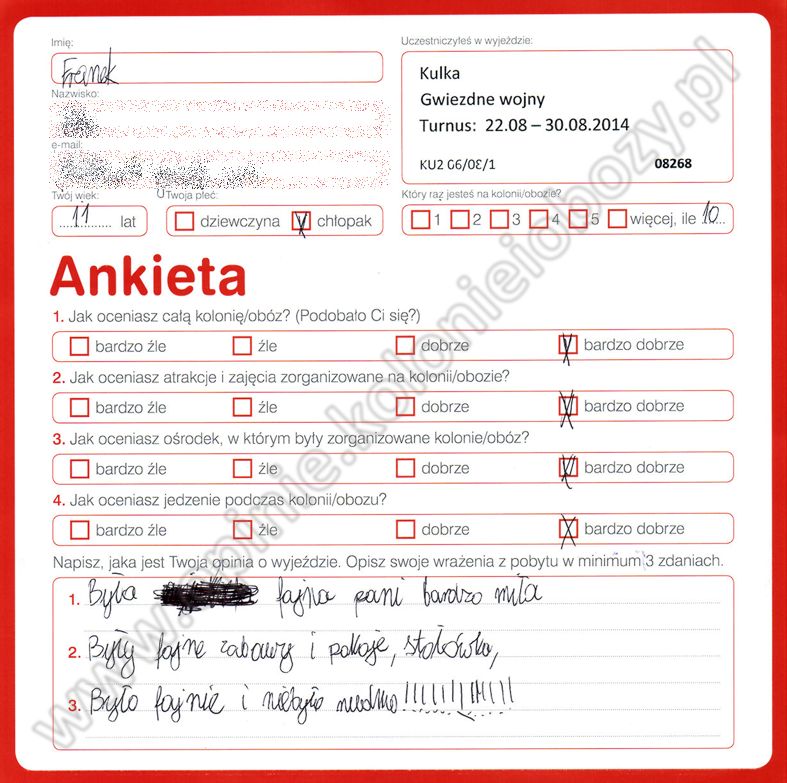 Imię:
Uczestniczyłeś w wyjeździe:
Franek
Kulka
Gwiezdne wojny
Turnus: 22.08 – 30.08.2014
KU2 06/08/1
08268
Nazwisko:
e-mail:
Twój wiek:
Twoja płeć:
Który raz jesteś na kolonii/obozie?
11 lat
dziewczyna
chłopak
1 2 3 4 5 więcej, ile 10
Ankieta
1. Jak oceniasz całą kolonię/obóz? (Podobało Ci się?)
bardzo źle źle dobrze bardzo dobrze
2. Jak oceniasz atrakcje i zajęcia zorganizowane na kolonii/obozie?
bardzo źle źle dobrze bardzo dobrze
3. Jak oceniasz ośrodek, w którym były zorganizowane kolonie/obóz?
bardzo źle źle dobrze bardzo dobrze
4. Jak oceniasz jedzenie podczas kolonii/obozu?
bardzo źle źle dobrze bardzo dobrze
Napisz, jaka jest Twoja opinia o wyjeździe. Opisz swoje wrażenia z pobytu w minimum 3 zdaniach.
1. Była fajna pani bardzo miła
2. Były fajne zabawy i pokoje, stołówka,
3. Było fajnie i niebyło nudno!!!!!!!!!!!!
www.opinie.kolonieiobozy.pl